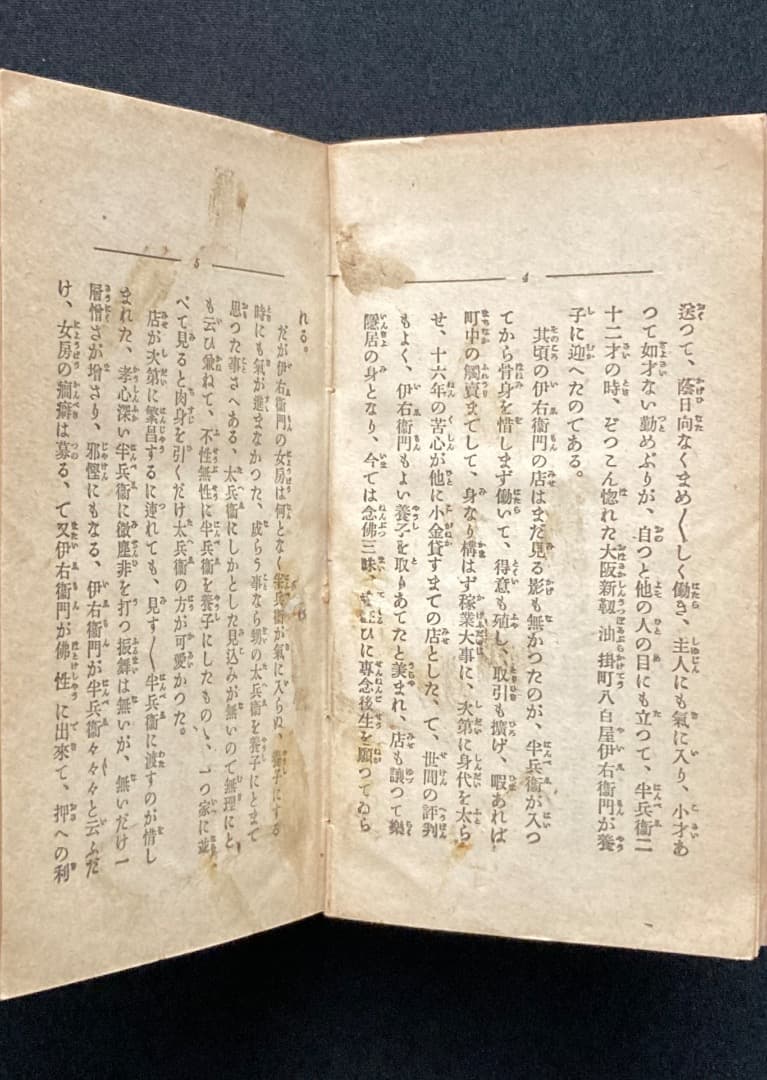 4
送つて、蔭日向なくまめ〱しく働き、主人にも氣に入り、小才あ
つて如才ない勤めぶりが、自つと他の人の目にも立つて、半兵衞二
十二才の時、ぞつこん惚れた大阪新靱油掛町八百屋伊右衞門が養
子に迎へたのである。
其頃の伊右衞門の店はまだ見る影も無かつたのが、半兵衞が入つ
てから骨身を惜しまず働いて、得意も殖し、取引も擴げ、暇あれば
町中の觸賣までして、身なり構はず稼業大事に、次第に身代を太ら
せ、十六年の苦心が他に小金貸すまでの店とした、て、世間の評判
もよく、伊右衞門もよい養子を取りあてたと美まれ、店も讓つて樂
隱居の身となり、今では念佛三昧、ひに專念後生を願つてゐら
5
れる。
だが伊右衞門の女房は何となく半兵衞が氣に入らぬ、養子にする
時にも氣が進まなかつた、成らう事なら甥の太兵衞を養子にとまで
思つた事さへある、太兵衞にしかとした見込みが無いので無理にと
も云ひ兼ねて、不性無性に半兵衞を養子にしたものゝ、一つ家に並
べて見ると肉身を引くだけ太兵衞の方が可愛かつた。
店が次第に繁昌するに連れても、見す〱半兵衞に渡すのが惜し
まれた、孝心深い半兵衞に微塵非を打つ振舞は無いが、無いだけ一
層憎さが增さり、邪慳にもなる、伊右衞門が半兵衞々々々と云ふだ
け、女房の癇癪は募る、て又伊右衞門が佛性に出來て、押への利